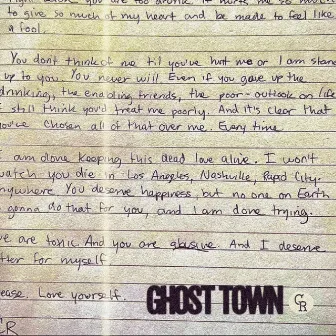 you are too drunk. It hurts me so much
to give so much of my heart and be made to feel like
a fool.
You don't think of me til you've hurt me or I am stand
up to you. You never will. Even if you gave up the
drinking, the enabling friends, the poor-outlook on life
I still think you'd treat me poorly. And it's clear that
you've chosen all of that over me. Every time
am done keeping this dead love alive. I won't
watch you die in Los Angeles, Nashville, Rapid City.
nywhere. You deserve happiness, but no one on Earth
gonna do that for you, and I am done trying.
e are toxic. And you are abusive. And I deserve
tter for myself
ease. Love yourself.
GHOST TOWN
CR
CR